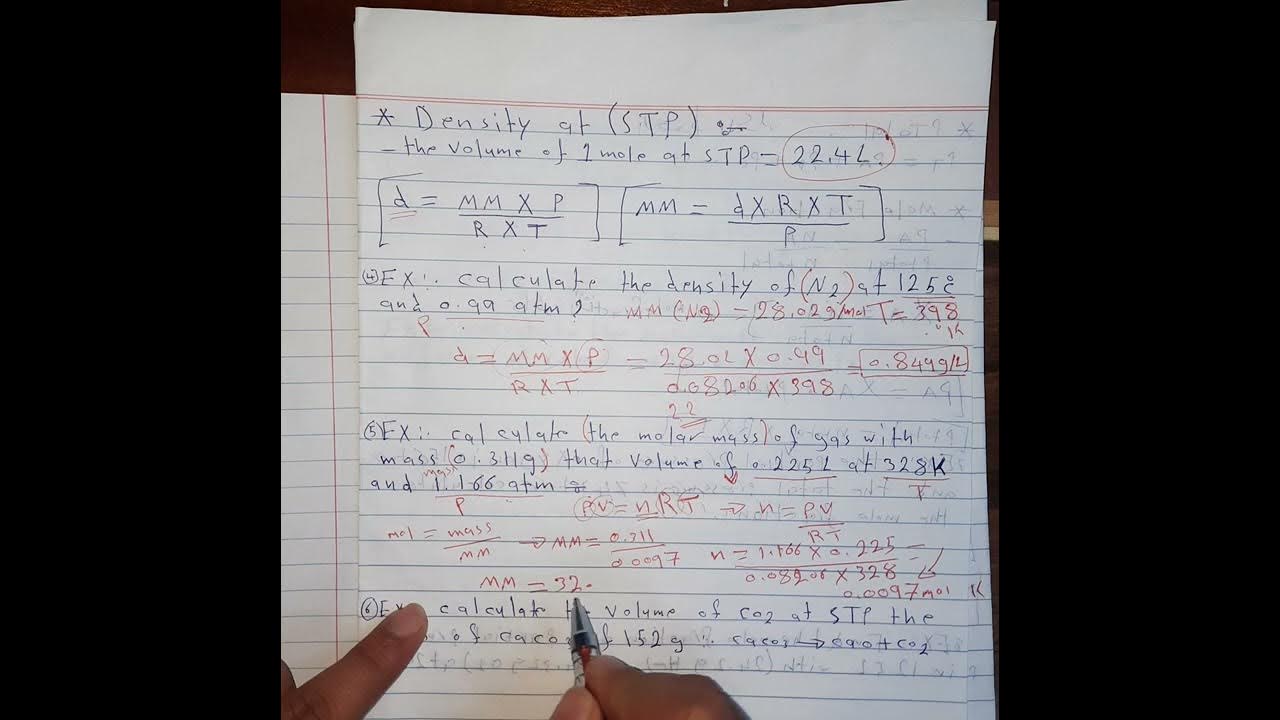 * Density at (STP) :-
- the volume of 1 mole at STP = 22.4L.
d = MM X P / R X T    MM = d X R X T / P
(4) EX:. calculate the density of (N2) at 125c°
and 0.99 atm? MM (N2) = 28.02 g/mol T = 398 K
P
d = MM X P / R X T = 28.02 X 0.99 / 0.08206 X 398 = 0.849 g/L
(5) EX:. calculate (the molar mass) of gas with
mass (0.311g) that volume of 0.225L at 328K
mass V T
and 1.166 atm
P
PV = nRT → n = PV / RT
mol = mass / MM → MM = 0.311 / 0.0097
n = 1.166 X 0.225 / 0.08206 X 328 =
0.0097 mol
MM = 32.
(6) EX calculate volume of CO2 at STP the
of caco 152 g :. caco3 → cao + co2